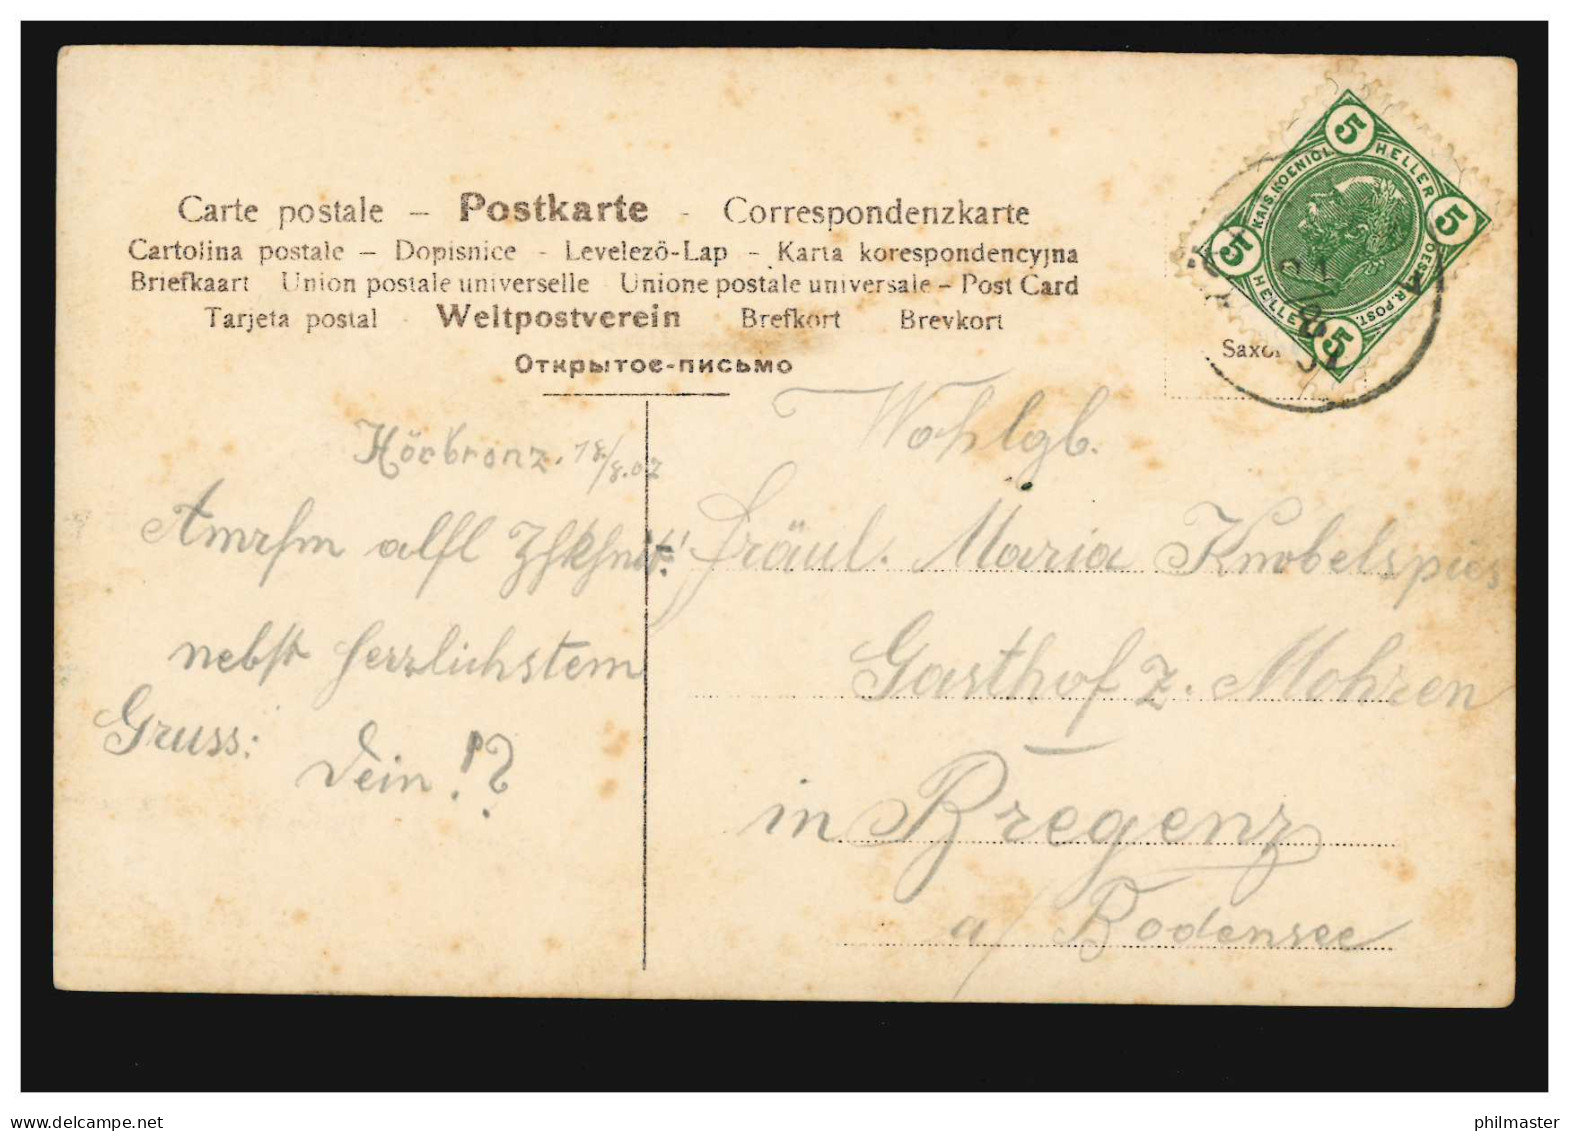 Carte postale – Postkarte - Correspondenzkarte
Cartolina postale – Dopisnice - Levelező-Lap - Karta korespondencyjna
Briefkaart Union postale universelle Unione postale universale – Post Card
Tarjeta postal Weltpostverein Brefkort Brevkort
Открытое-письмо
5 HELLER 5
KAIS. KOENIGL.
OESTERR. POST.
5 HELLER 5
Hörbranz, 18/8.07
nebst herzlichstem
Gruss:
Dein!?
Wohlgb.
Fräul. Maria Knobelspies
Gasthof z. Mohren
in Bregenz
a/ Bodensee
www.delcampe.net
philmaster